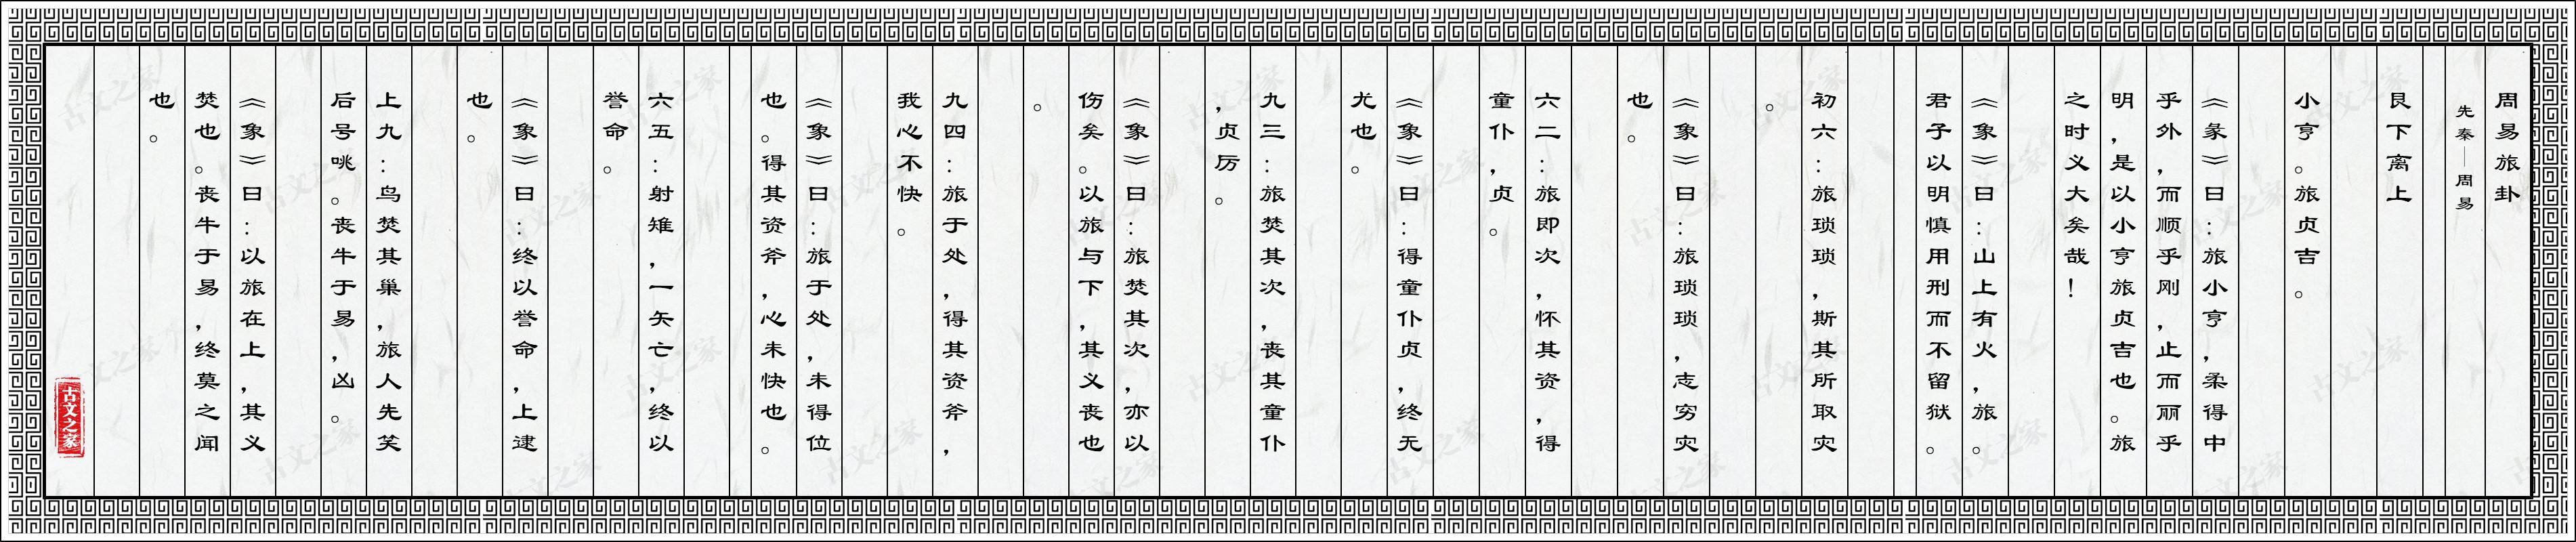 周易旅卦
先秦—周易
艮下离上
小亨。旅贞吉。
《篆》曰：旅小亨，柔得中
乎外，而顺乎刚，止而丽乎
明，是以小亨旅贞吉也。旅
之时义大矣哉！
《象》曰：山上有火，旅。
君子以明慎用刑而不留狱。
初六：旅琐琐，斯其所取灾
。
《象》曰：旅琐琐，志穷灾
也。
六二：旅即次，怀其资，得
童仆，贞。
《象》曰：得童仆贞，终无
尤也。
九三：旅焚其次，丧其童仆
，贞厉。
《象》曰：旅焚其次，亦以
伤矣。以旅与下，其义丧也
。
九四：旅于处，得其资斧，
我心不快。
《象》曰：旅于处，未得位
也。得其资斧，心未快也。
六五：射雉，一矢亡，终以
誉命。
《象》曰：终以誉命，上逮
也。
上九：鸟焚其巢，旅人先笑
后号咷。丧牛于易，凶。
《象》曰：以旅在上，其义
焚也。丧牛于易，终莫之闻
也。
古文之家